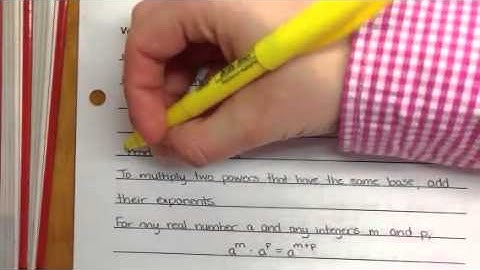 To multiply two powers that have the same base, add
their exponents.
For any real number a and any integers m and p,
aᵐ · aᵖ = aᵐ⁺ᵖ